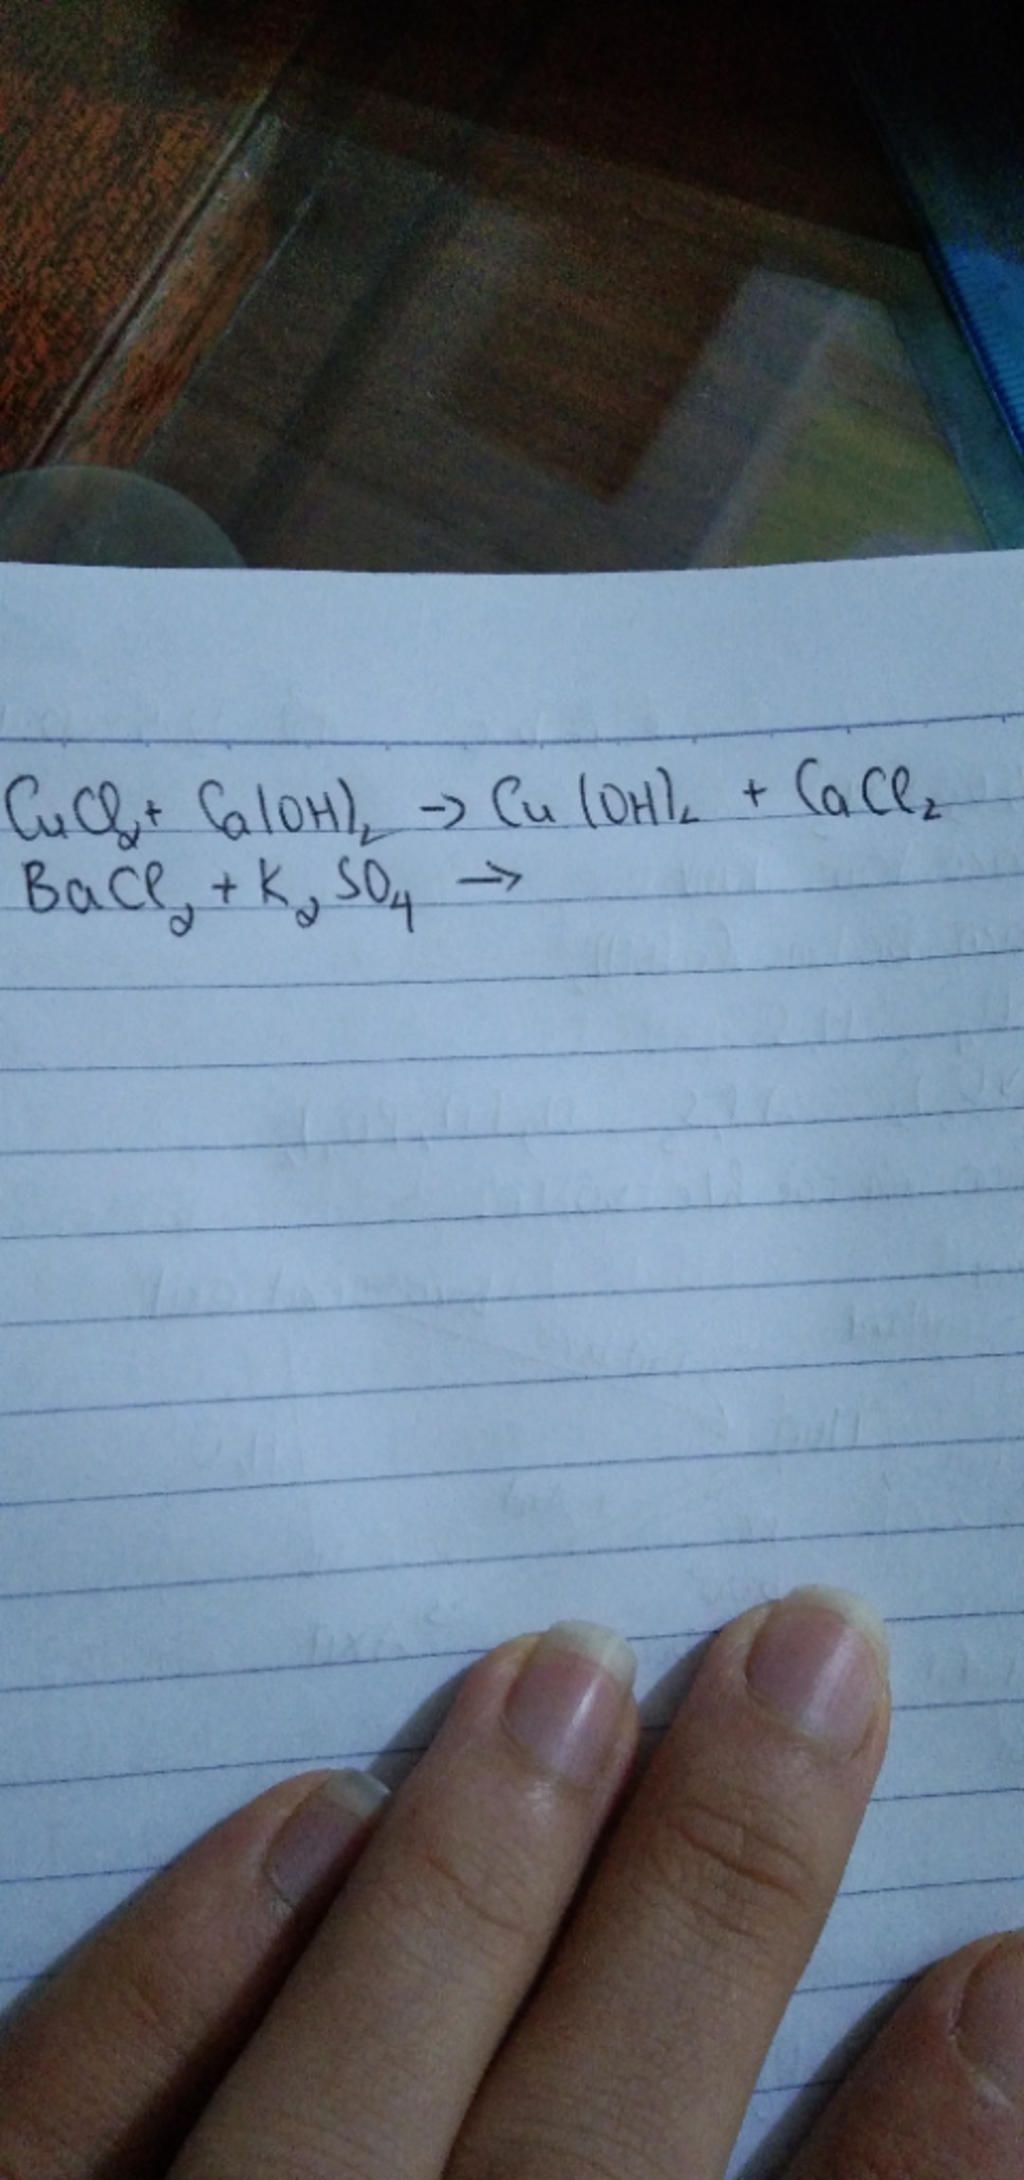 CuCl₂ + Ca(OH)₂ → Cu(OH)₂ + CaCl₂
BaCl₂ + K₂SO₄ →